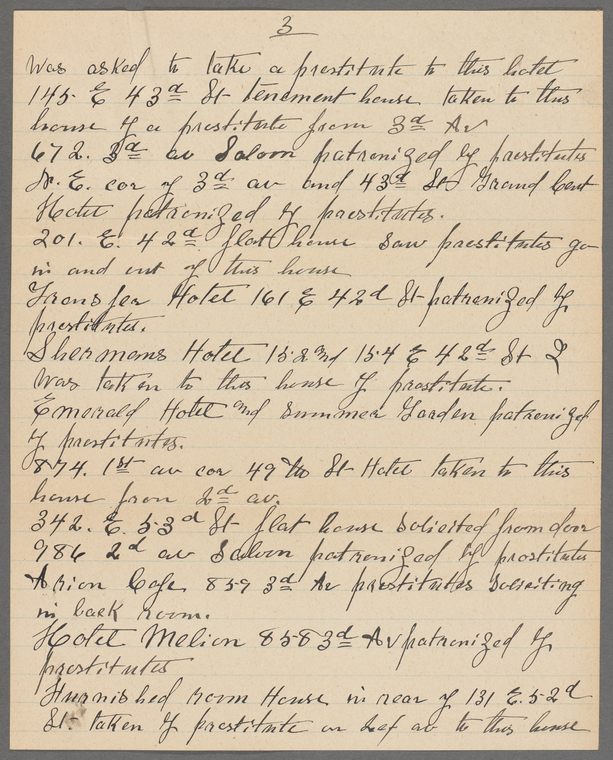 3
was asked to take a prostitute to this hotel
145 E 43d St tenement house taken to this
house by a prostitute from 3d Av
672. 3d av Saloon patronized by prostitutes
N. E. cor of 3d av and 43d St Grand Cent
Hotel patronized by prostitutes.
201. E. 42d flat house saw prostitutes go
in and out of this house
Transfer Hotel 161 E 42d St patronized by
prostitutes.
Shermans Hotel 152 and 154 E 42d St I
was taken to this house by prostitute.
Emerald Hotel and Summer Garden patronized
by prostitutes.
874. 1st av cor 49th St Hotel taken to this
house from 2d av.
342. E. 53d St flat house solicited from door
986 2d av Saloon patronized by prostitutes
Arion Cafe 859 3d Av prostitutes soliciting
in back room.
Hotel Melion 858 3d Av patronized by
prostitutes
Furnished room House in rear of 131 E. 52d
St. taken by prostitute on Lex av to this house